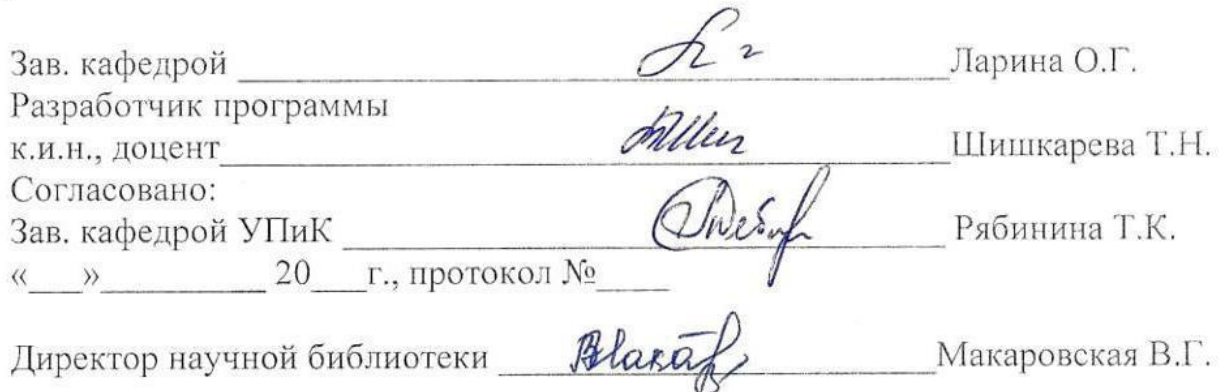 Зав. кафедрой ____________ Ларина О.Г.
Разработчик программы
к.и.н., доцент____________ Шишкарева Т.Н.
Согласовано:
Зав. кафедрой УПиК ____________ Рябинина Т.К.
«___»__________ 20___г., протокол №____
Директор научной библиотеки ____________ Макаровская В.Г.